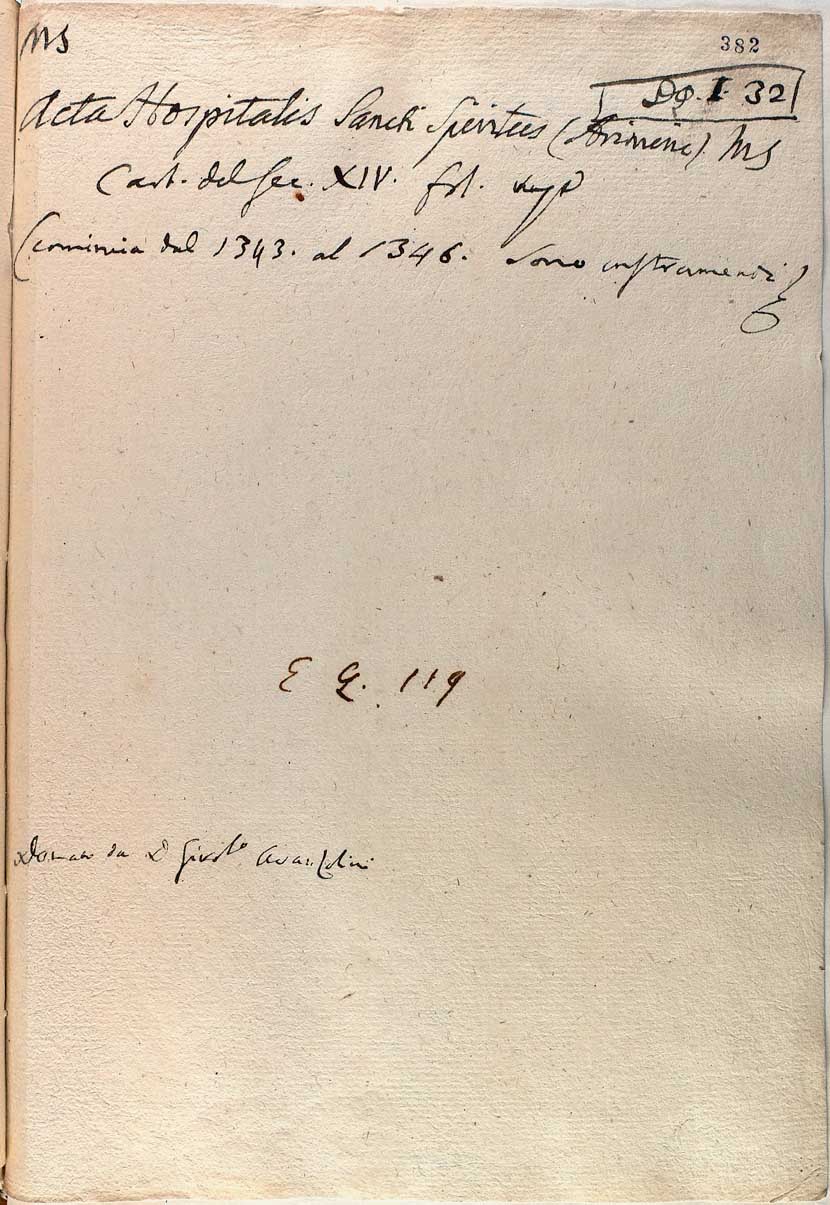 MS
382
DP. I. 32
Acta Hospitalis Sancti Spiritus (Arimini) MS
Cart. del Sec. XIV. fol.
(comincia dal 1343. al 1346. Sono instrumenti)
E G. 119
Donato da D Girol.º Avanzolini